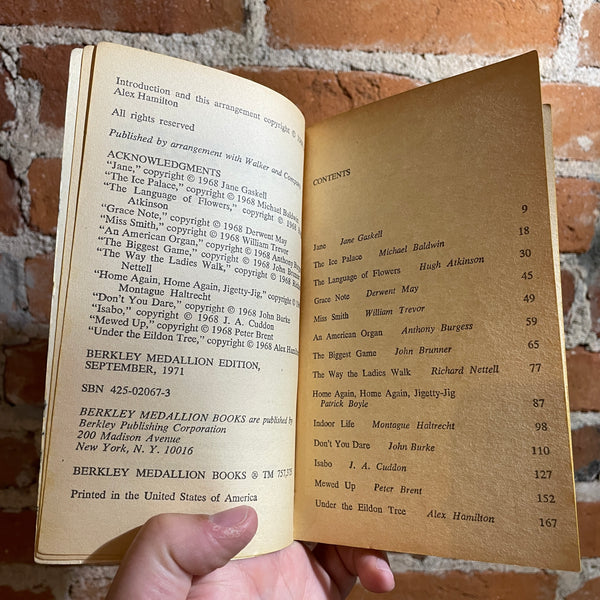 Introduction and this arrangement copyright ©
Alex Hamilton
All rights reserved
Published by arrangement with Walker and Company
ACKNOWLEDGMENTS
"Jane," copyright © 1968 Jane Gaskell
"The Ice Palace," copyright © 1968 Michael Baldwin
"The Language of Flowers," copyright © 1968
Atkinson
"Grace Note," copyright © 1968 Derwent May
"Miss Smith," copyright © 1968 William Trevor
"An American Organ," copyright © 1968 Anthony
"The Biggest Game," copyright © 1968 John Brunner
"The Way the Ladies Walk," copyright © 1968
Nettell
"Home Again, Home Again, Jigetty-Jig," copyright ©
Montague Haltrecht
"Don't You Dare," copyright © 1968 John Burke
"Isabo," copyright © 1968 J. A. Cuddon
"Mewed Up," copyright © 1968 Peter Brent
"Under the Eildon Tree," copyright © 1968 Alex
BERKLEY MEDALLION EDITION,
SEPTEMBER, 1971
SBN 425-02067-3
BERKLEY MEDALLION BOOKS are published by
Berkley Publishing Corporation
200 Madison Avenue
New York, N. Y. 10016
BERKLEY MEDALLION BOOKS ® TM 757,375
Printed in the United States of America
CONTENTS
Jane Jane Gaskell 9
The Ice Palace Michael Baldwin 18
The Language of Flowers Hugh Atkinson 30
Grace Note Derwent May 45
Miss Smith William Trevor 49
An American Organ Anthony Burgess 59
The Biggest Game John Brunner 65
The Way the Ladies Walk Richard Nettell 77
Home Again, Home Again, Jigetty-Jig
Patrick Boyle 87
Indoor Life Montague Haltrecht 98
Don't You Dare John Burke 110
Isabo J. A. Cuddon 127
Mewed Up Peter Brent 152
Under the Eildon Tree Alex Hamilton 167